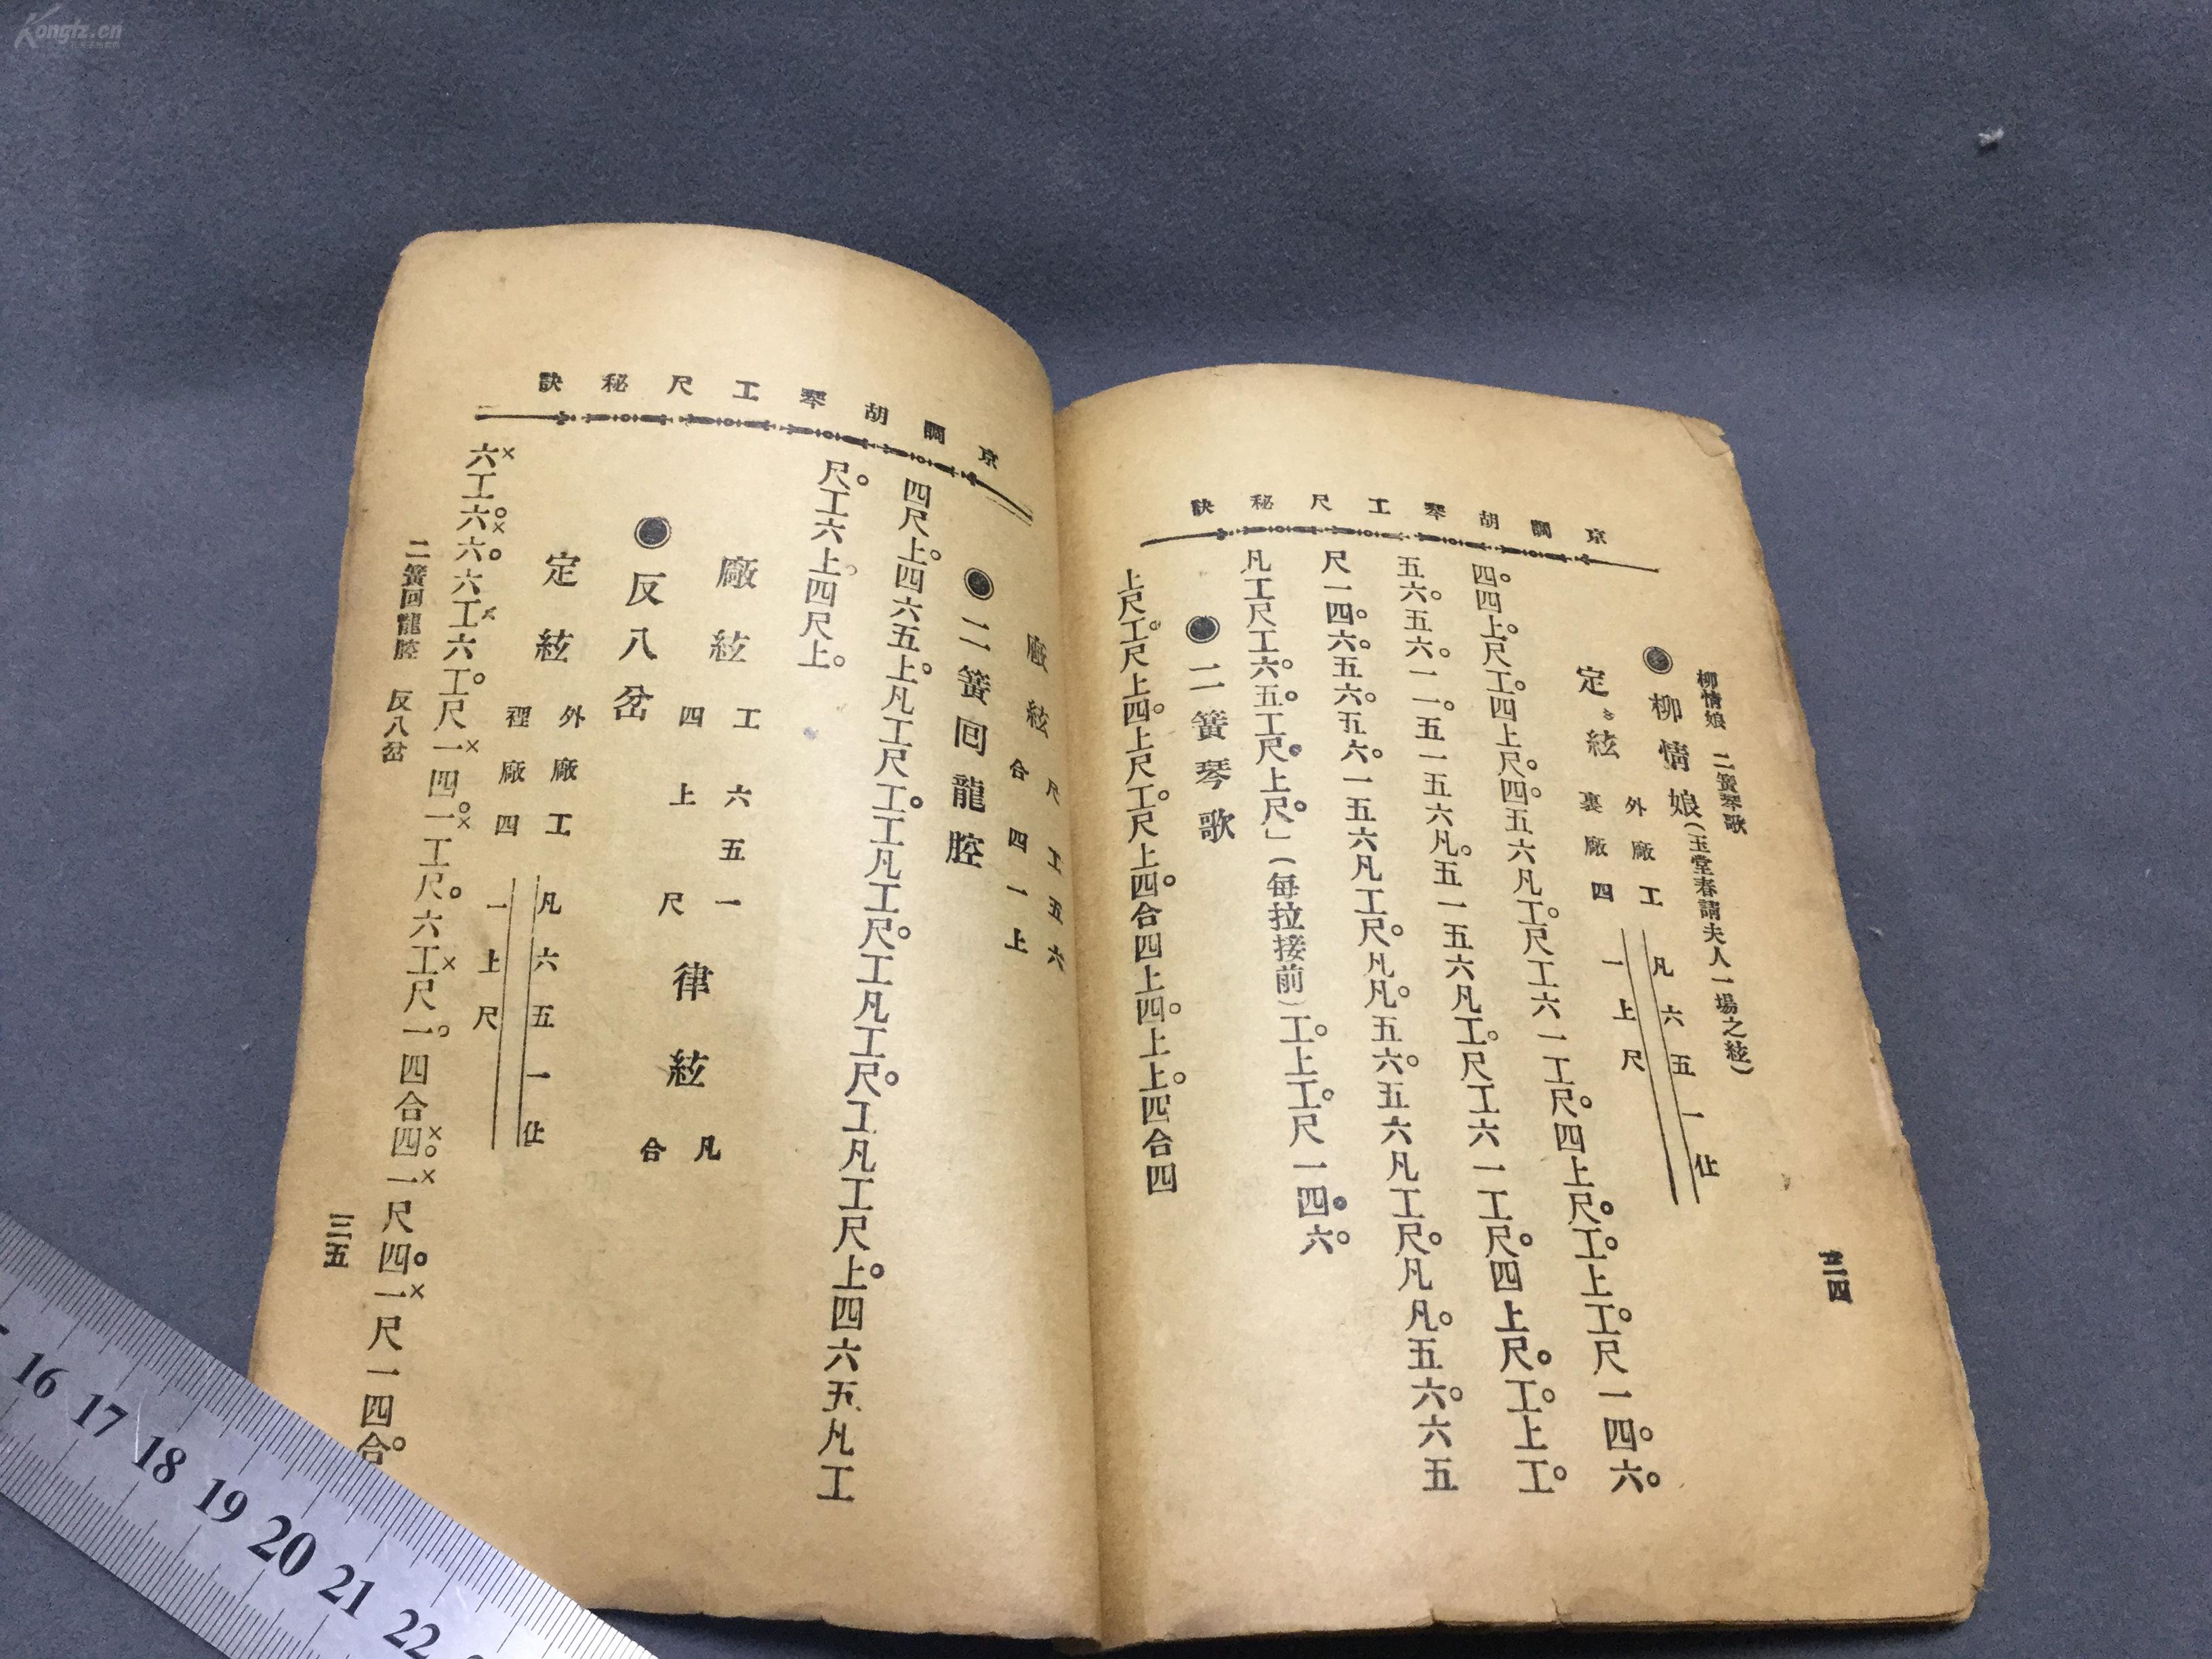 Kongfz.cn
京調胡琴工尺秘訣
柳情娘 二簧琴歌
三四
●柳情娘(玉堂春請夫人一場之絃)
定絃 外廠工 凡六五一仩
裏廠四 一上尺
四四上尺工四上尺四五六凡工尺工六一工尺四上尺工上工尺一四六
五六五六一一五一五六凡五一五六凡工尺工六一工尺四上尺工上工
尺一四六五六五六一五六凡工尺凡凡五六五六凡工尺凡凡五六六五
凡工尺工六五工尺上尺」(每拉接前)工上工尺一四六
●二簧琴歌
上尺工尺上四上尺工尺上四合四上四上上四合四
京調胡琴工尺秘訣
廠絃 尺工五六
合四一上
●二簧回龍腔
四尺上四六五上凡工尺工工凡工尺工凡工尺工凡工尺上四六五凡工
尺工六上四尺上
廠絃 工六五一 律絃 凡
四上尺 合
●反八岔
定絃 外廠工 凡六五一仩
裡廠四 一上尺
六工六六六工六工尺一四一工尺六工尺一四合四一尺四一尺一四合
二簧回龍腔 反八岔
三五
16 17 18 19 20 21 22